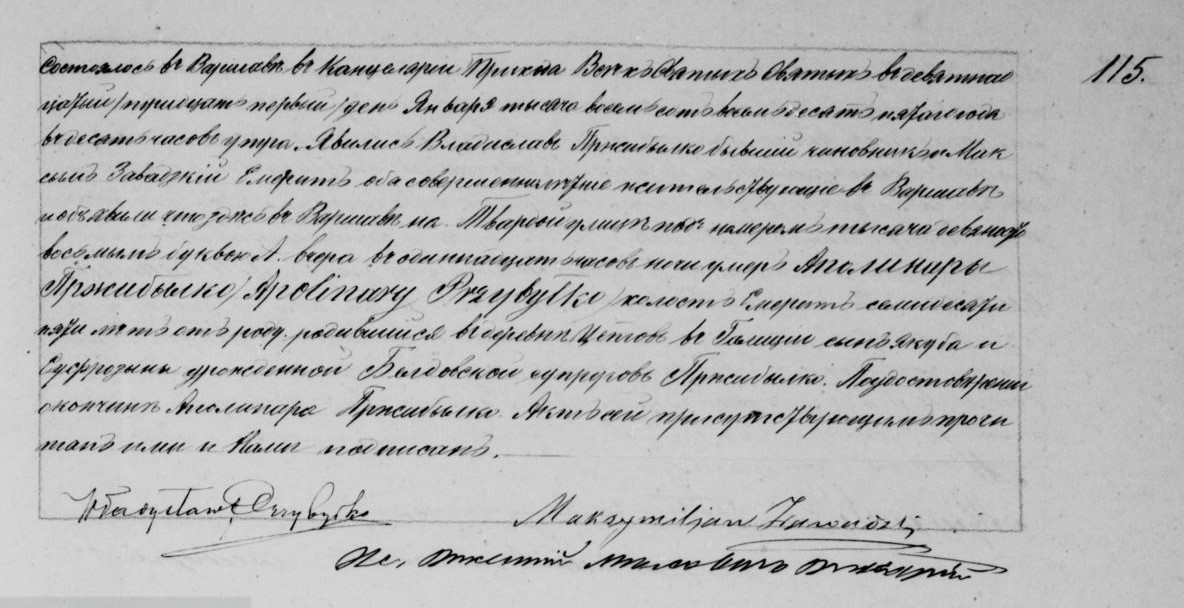 115.
Состоялось въ Варшавѣ въ Канцелярiи Прихода Всѣхъ Святыхъ въ девятнад
цатый /тридцать первый/ день Января тысяча восемь сотъ восемьдесятъ пятаго года
въ десять часовъ утра. Явились Владиславъ Пржибылко бывшiй чиновникъ и Мак
сымъ Завадзкiй Емеритъ оба совершеннолѣтнiе жительствующiе въ Варшавѣ
и объявили что здѣсь въ Варшавѣ на Твардой улицѣ подъ номеромъ тысяча девяносто
восьмымъ буквою А. вчера въ одиннадцать часовъ ночи умеръ Аполинары
Пржибылко /Apolinary Przybyłko/ холостъ Емеритъ семидесяти
пяти лѣтъ отъ роду, родившийся въ деревнѣ въ Галицiи сынъ Якуба и
Еуфрозыны урожденной супруговъ Пржибылко. По удостовѣренiи
о кончинѣ Аполинара Пржибылко. Актъ сей присутствующимъ прочи
танъ ими и Нами подписанъ.
Władysław Przybyłko
Maksymiljan Zawadzki